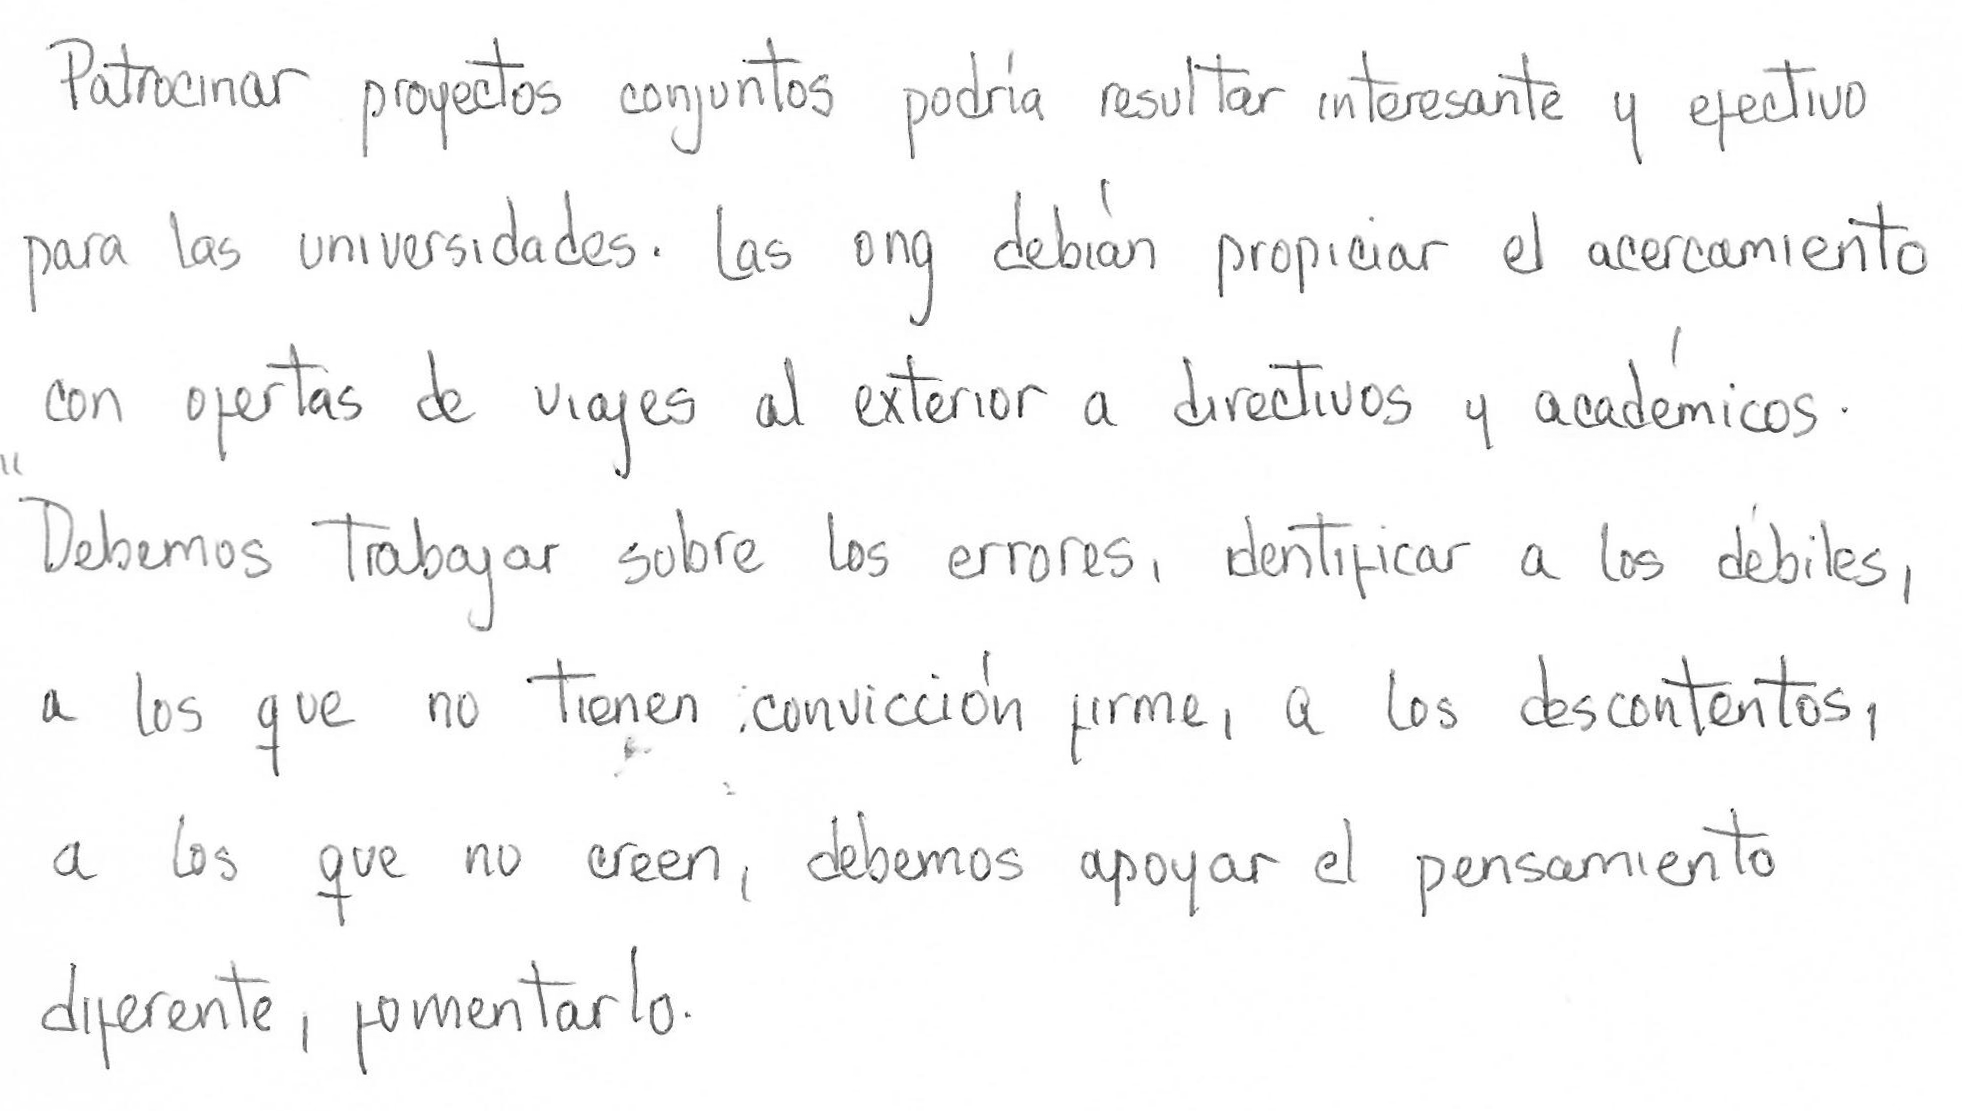 Patrocinar proyectos conjuntos podría resultar interesante y efectivo
para las universidades. Las ong debían propiciar el acercamiento
con ofertas de viajes al exterior a directivos y académicos.
"Debemos trabajar sobre los errores, identificar a los débiles,
a los que no tienen convicción firme, a los descontentos,
a los que no creen, debemos apoyar el pensamiento
diferente, fomentarlo.